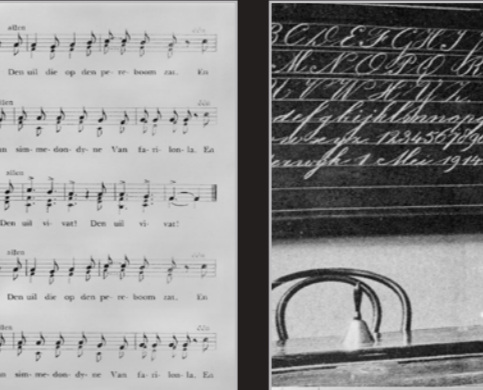 allen
Den uil die op den pe-re-boom zat. En
allen
sim-me-don-dy-ne Van fa-ri-lon-la. En
allen
Den uil vi-vat! Den uil vi-vat!
allen
Den uil die op den pe-re-boom zat. En
allen
sim-me-don-dy-ne Van fa-ri-lon-la. En
BCDEFGHI
MNOPQR
UVWXYZ
defghijklmnopq
xyz 1234567890
1 Mei 1914